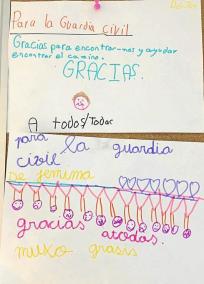 Para la Guardia civil
Gracias para encontrar-nos y ayudar
encontrar el camino.
GRACIAS.
A todos/Todas
para la guardia
civil
De jemima
gracias atodas.
muxo grasis